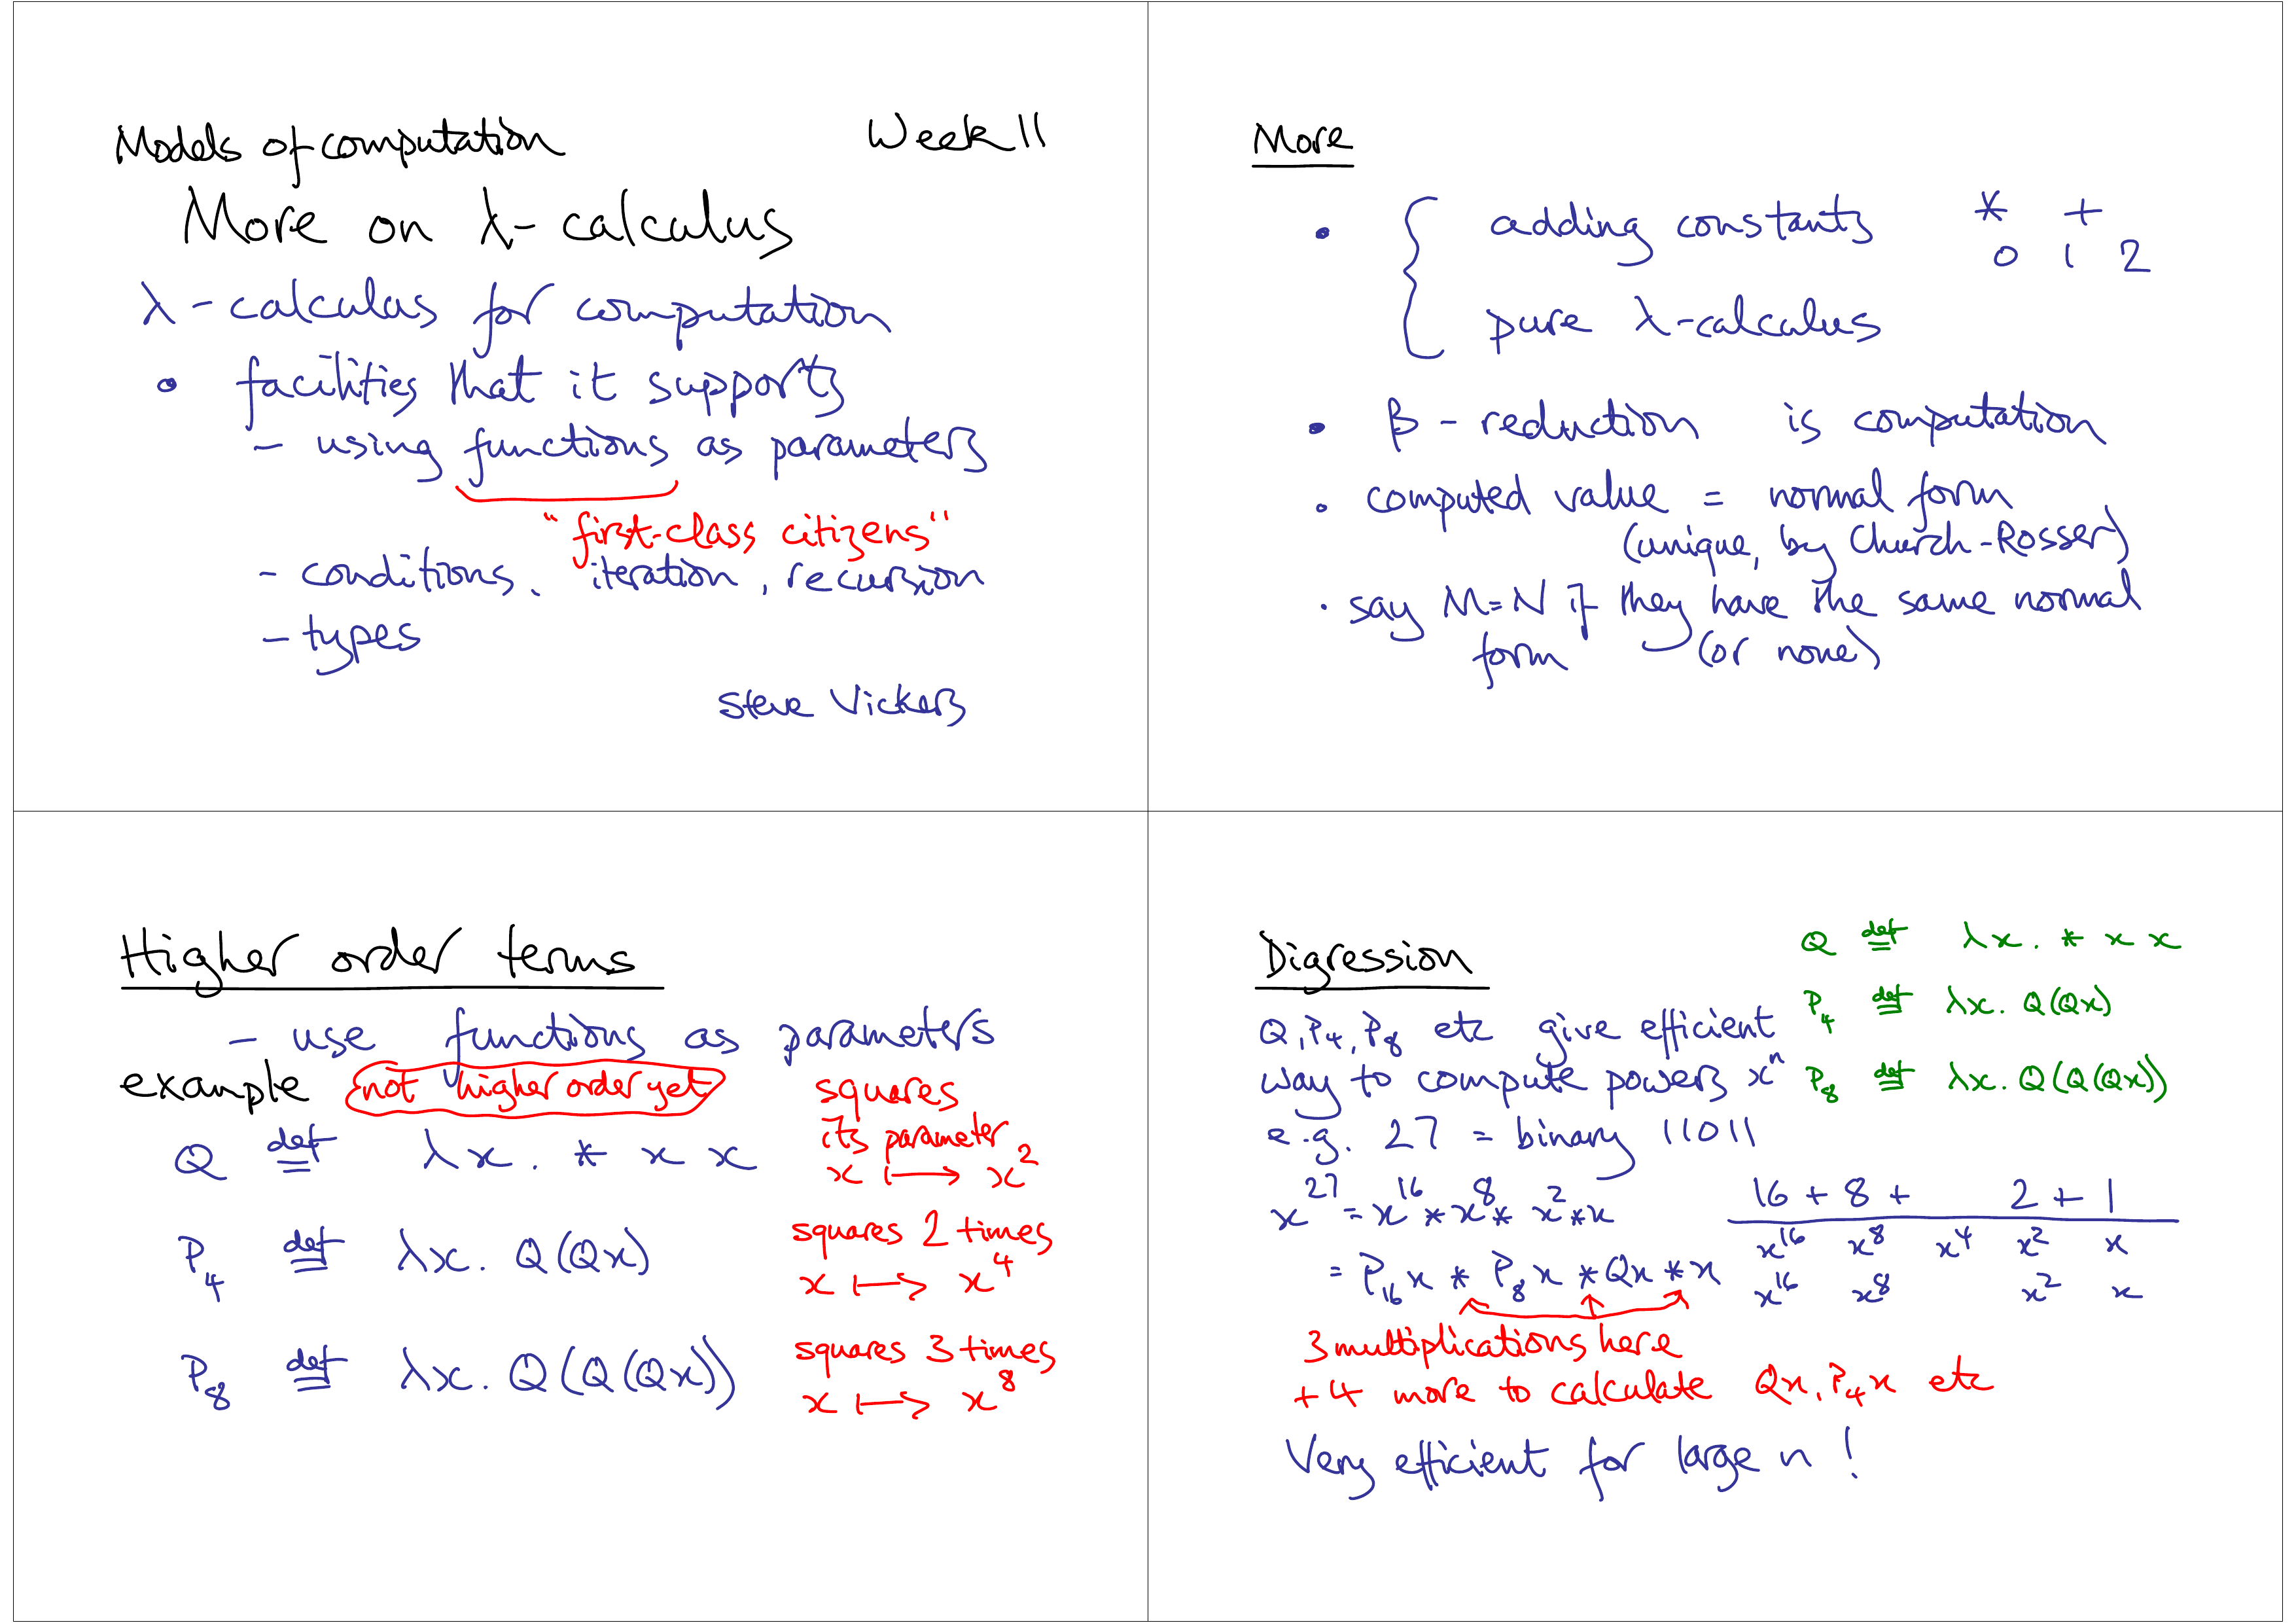 Models of computation Week 11
More on λ-calculus
λ-calculus for computation
• facilities that it supports
- using functions as parameters
"first-class citizens"
- conditions, iteration, recursion
- types
Steve Vickers
More
• { adding constants * +
0 1 2
pure λ-calculus
• β-reduction is computation
• computed value = normal form
(unique, by Church-Rosser)
• say M=N if they have the same normal
form (or none)
Higher order terms
- use functions as parameters
example not higher order yet
squares
its parameter
Q def= λx. * x x
x ↦ x²
squares 2 times
P₄ def= λx. Q(Qx)
x ↦ x⁴
squares 3 times
P₈ def= λx. Q(Q(Qx))
x ↦ x⁸
Digression
Q def= λx. * x x
P₄ def= λx. Q(Qx)
P₈ def= λx. Q(Q(Qx))
Q, P₄, P₈ etc give efficient
way to compute powers xⁿ
e.g. 27 = binary 11011
x²⁷ = x¹⁶ * x⁸ * x² * x
= P₁₆x * P₈x * Qx * x
16 + 8 + 2 + 1
x¹⁶ x⁸ x⁴ x² x
x¹⁶ x⁸ x² x
3 multiplications here
+4 more to calculate Qx, P₄x etc
Very efficient for large n!